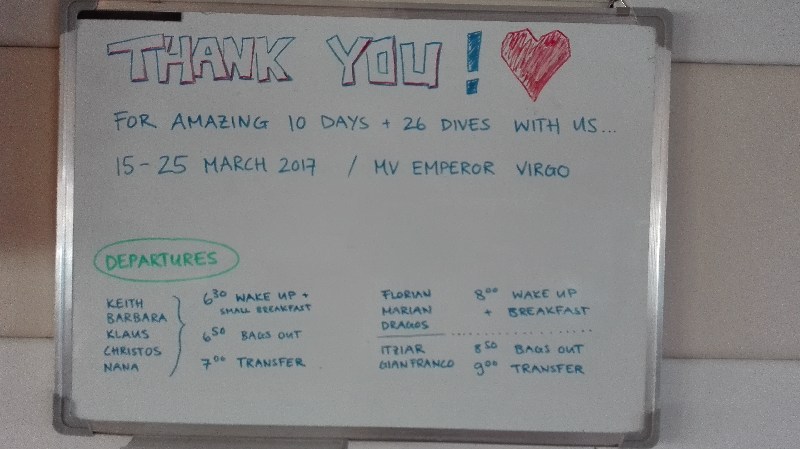 THANK YOU!
FOR AMAZING 10 DAYS + 26 DIVES WITH US...
15-25 MARCH 2017 / MV EMPEROR VIRGO
DEPARTURES
KEITH
BARBARA
KLAUS
CHRISTOS
NANA
6³⁰ WAKE UP +
SMALL BREAKFAST
6⁵⁰ BAGS OUT
7⁰⁰ TRANSFER
FLORIAN
MARIAN
DRAGOS
ITZIAR
GIANFRANCO
8⁰⁰ WAKE UP
+ BREAKFAST
8⁵⁰ BAGS OUT
9⁰⁰ TRANSFER